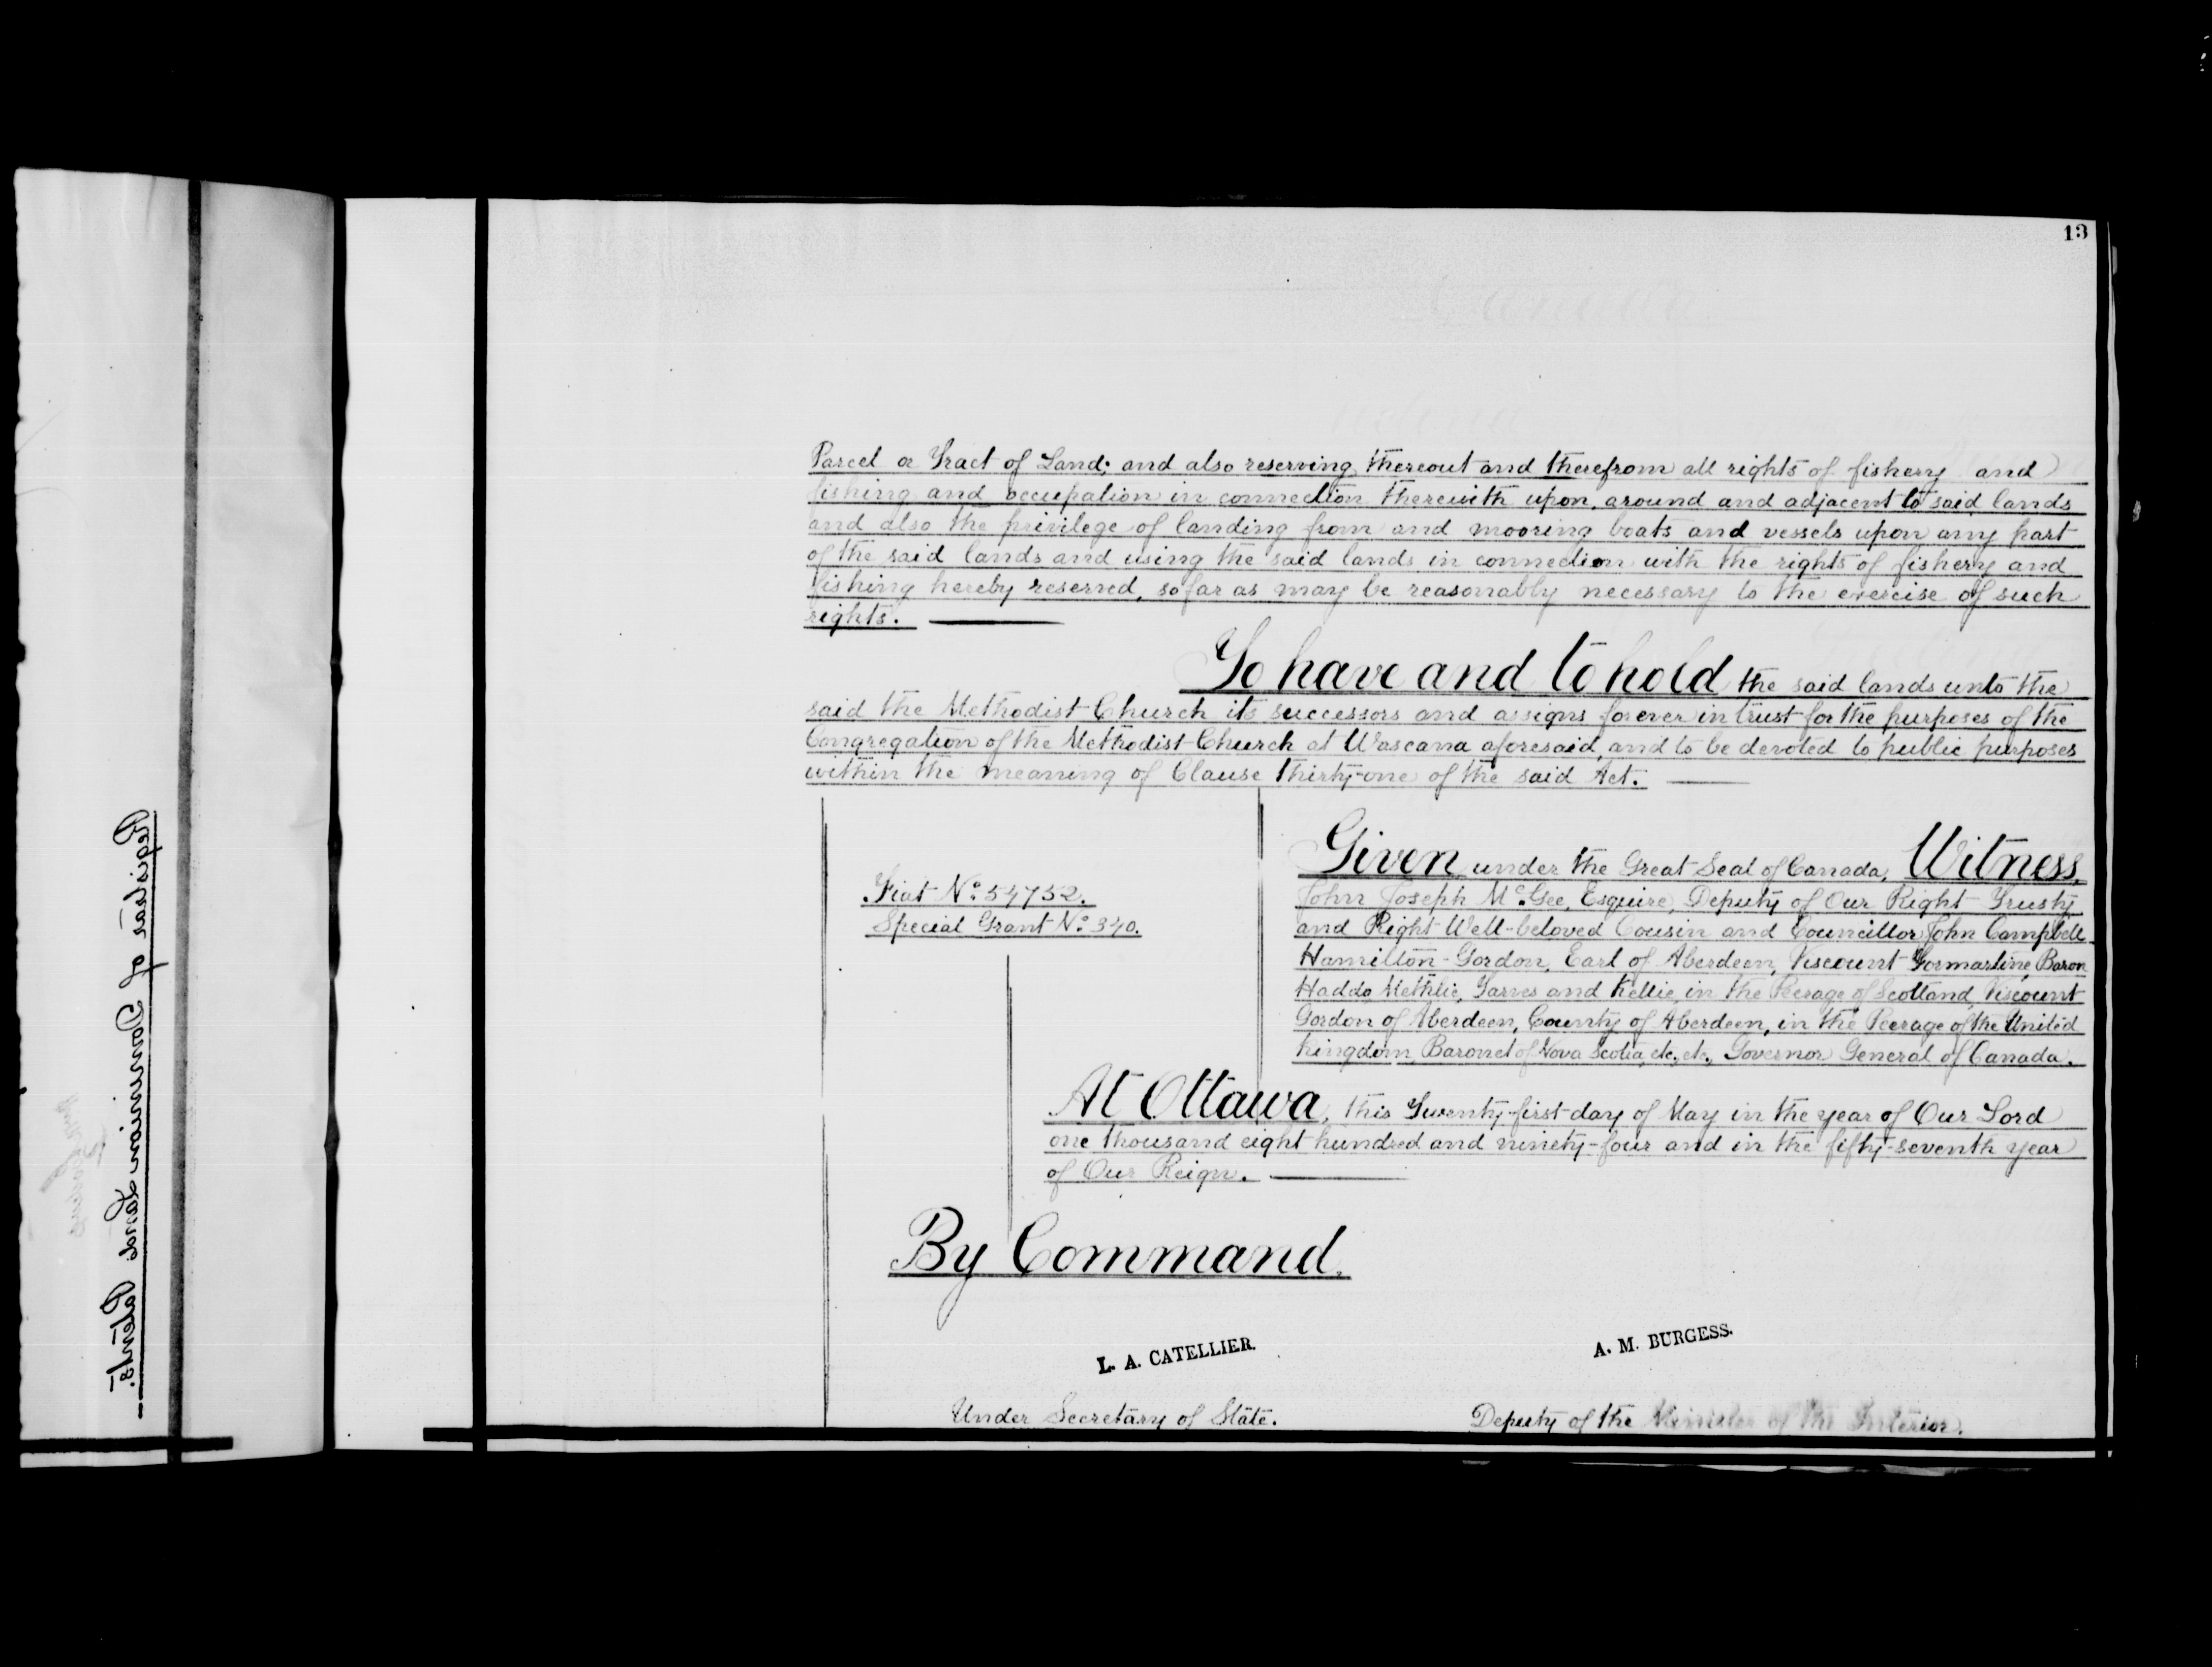 13
Parcel or Tract of Land; and also reserving thereout and therefrom all rights of fishery and
fishing and occupation in connection therewith upon, around and adjacent to said lands
and also the privilege of landing from and mooring boats and vessels upon any part
of the said lands and using the said lands in connection with the rights of fishery and
fishing hereby reserved, so far as may be reasonably necessary to the exercise of such
rights.
To have and to hold the said lands unto the
said the Methodist Church its successors and assigns forever in trust for the purposes of the
Congregation of the Methodist Church at Wascana aforesaid, and to be devoted to public purposes
within the meaning of Clause thirty-one of the said Act.
Fiat No. 54752.
Special Grant No. 340.
Given under the Great Seal of Canada, Witness,
John Joseph McGee, Esquire, Deputy of Our Right Trusty
and Right Well-beloved Cousin and Councillor John Campbell
Hamilton-Gordon, Earl of Aberdeen, Viscount Formartine, Baron
Haddo, Methlic, Tarves and Kellie, in the Peerage of Scotland, Viscount
Gordon of Aberdeen, County of Aberdeen, in the Peerage of the United
Kingdom, Baronet of Nova Scotia, etc., etc., Governor General of Canada.
At Ottawa, this Twenty-first day of May in the year of Our Lord
one thousand eight hundred and ninety-four and in the fifty-seventh year
of Our Reign.
By Command.
L. A. CATELLIER.
A. M. BURGESS.
Under Secretary of State.
Deputy of the Minister of the Interior.
Registrar of Dominion Lands Patents.